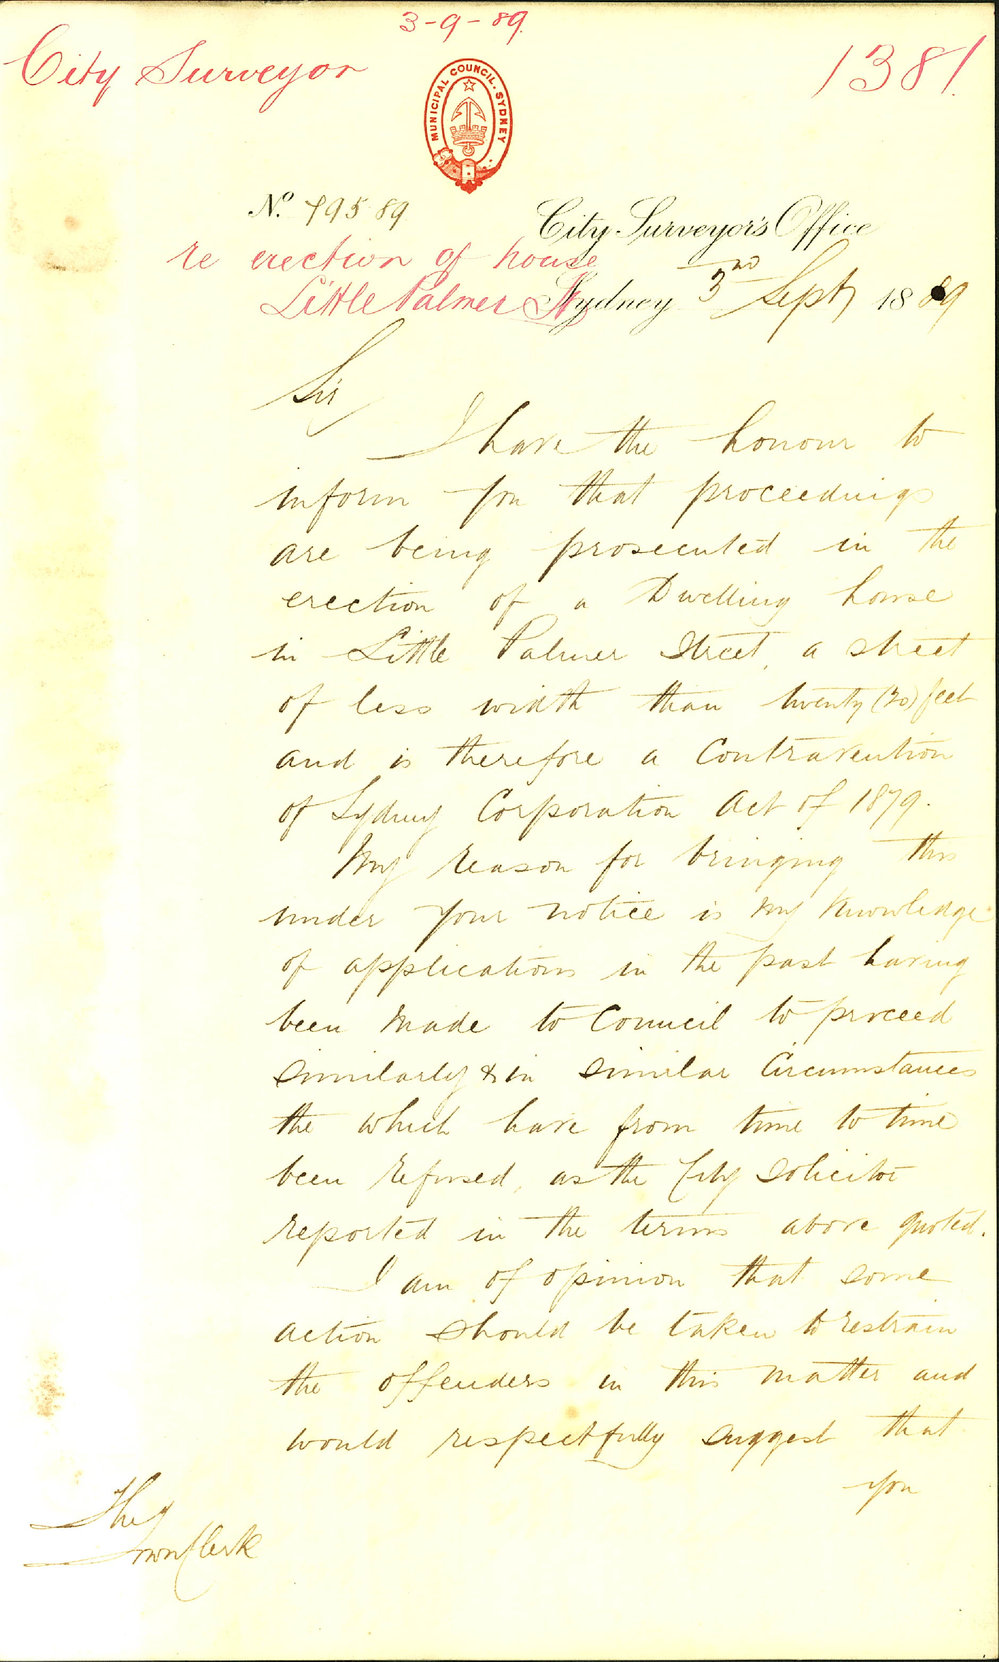 3-9-89
City Surveyor
1381.
MUNICIPAL COUNCIL. SYDNEY
No. 795 89
City Surveyor's Office
re erection of house
Little Palmer St
Sydney 3rd Sept 1889
Sir
I have the honour to
inform you that proceedings
are being prosecuted in the
erection of a Dwelling house
in Little Palmer Street, a street
of less width than twenty (20) feet
and is therefore a Contravention
of Sydney Corporation Act of 1879.
My reason for bringing this
under your notice is my knowledge
of applications in the past having
been made to Council to proceed
similarly & in similar Circumstances
the which have from time to time
been refused, as the City Solicitor
reported in the terms above quoted.
I am of opinion that some
action should be taken to restrain
the offenders in this matter and
would respectfully suggest that
you
The
Town Clerk